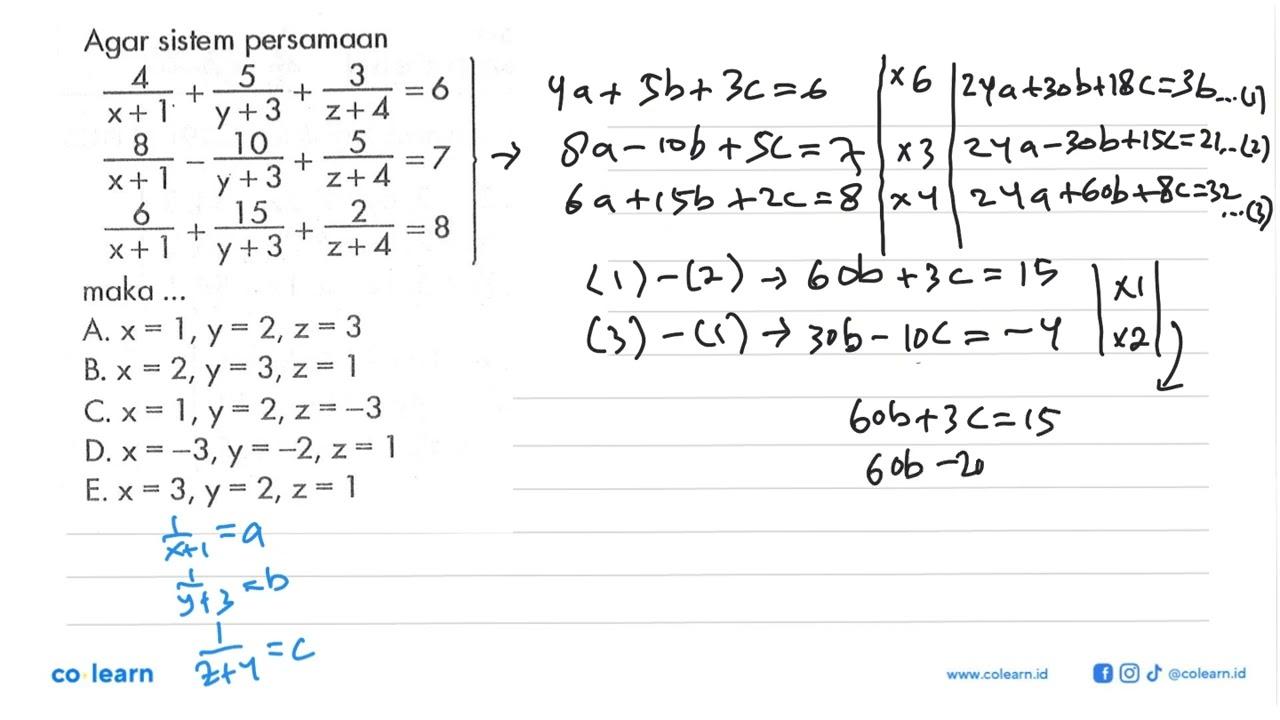 Agar sistem persamaan
4/(x+1) + 5/(y+3) + 3/(z+4) = 6
8/(x+1) − 10/(y+3) + 5/(z+4) = 7
6/(x+1) + 15/(y+3) + 2/(z+4) = 8
maka ...
A. x = 1, y = 2, z = 3
B. x = 2, y = 3, z = 1
C. x = 1, y = 2, z = −3
D. x = −3, y = −2, z = 1
E. x = 3, y = 2, z = 1
1/(x+1) = a
1/(y+3) = b
1/(z+4) = c
→ 4a + 5b + 3c = 6 | ×6 | 24a+30b+18c=36 ...(1)
8a − 10b + 5c = 7 | ×3 | 24a−30b+15c=21...(2)
6a + 15b + 2c = 8 | ×4 | 24a+60b+8c=32 ...(3)
(1)−(2) → 60b + 3c = 15 | ×1 |
(3)−(1) → 30b − 10c = −4 | ×2 |
60b + 3c = 15
60b − 20
co learn
www.colearn.id
@colearn.id